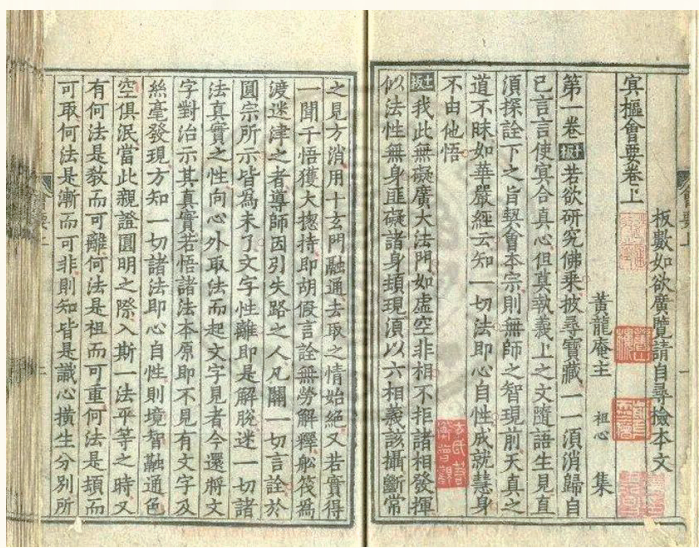 冥樞會要卷上
板數如欲廣覽請自尋檢本文
黃龍庵主 祖心 集
第一卷十板若欲研究佛乘披尋寶藏一一須消歸自
已言言使冥合真心但莫執義上之文隨語生見直
須探詮下之旨契會本宗則無師之智現前天真之
道不昧如華嚴經云知一切法即心自性成就慧身
不由他悟
十板我此無礙廣大法門如虛空非相不拒諸相發揮
似法性無身匪礙諸身頓現須以六相義該攝斷常
之見方消用十玄門融通去取之情始絕又若實得
一聞千悟獲大揔持即胡假言詮無勞解釋舩筏爲
渡迷津之者導師因引失路之人凡關一切言詮於
圓宗所示皆爲未了文字性離即是解脫迷一切諸
法真實之性向心外取法而起文字見者今還將文
字對治示其真實若悟諸法本原即不見有文字及
絲毫發現方知一切諸法即心自性則境智融通色
空俱泯當此親證圓明之際入斯一法平等之時又
有何法是敎而可離何法是祖而可重何法是頓而
可取何法是漸而可非則知皆是識心橫生分別所